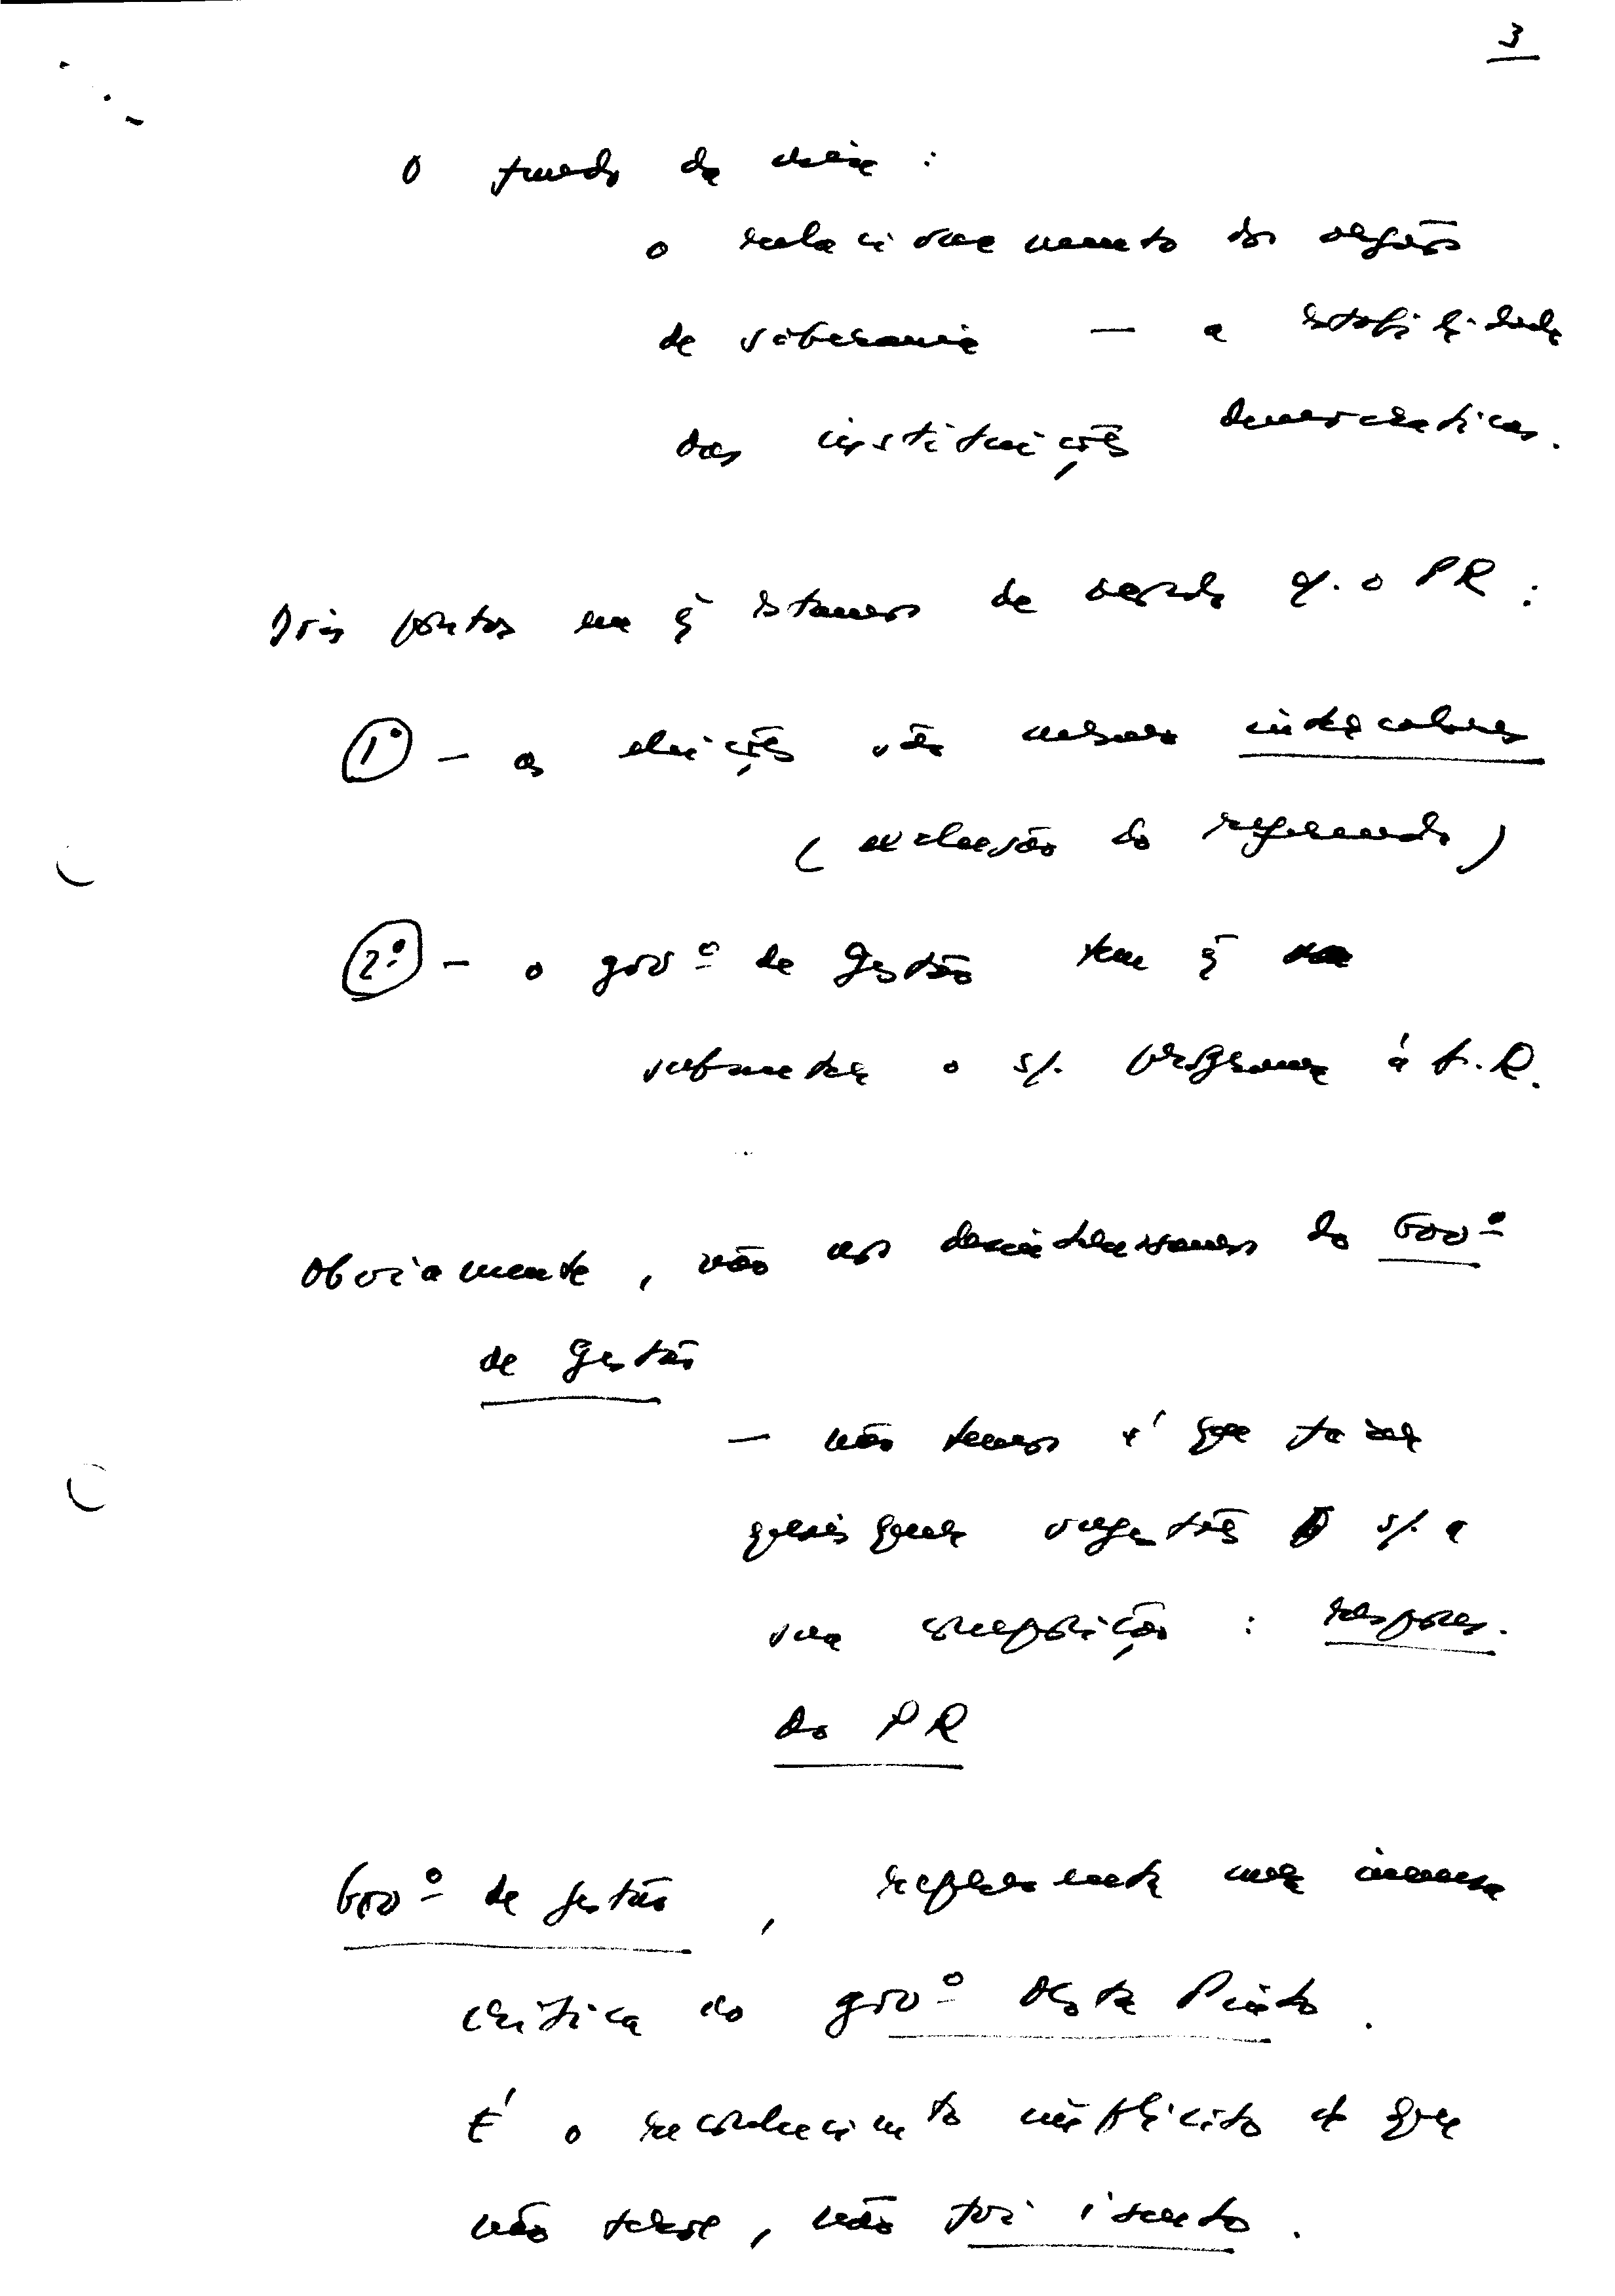 3
O fundo da crise :
o relacionamento dos orgãos
de soberania — a estabilidade
das instituições democraticas.
Dois pontos em q̃ estamos de acordo c/. o PR :
1º — as eleições são intercalares
(exclusão do referendo)
2º — o govº de gestão tem q̃
submeter o s/. programa à A.R.
Obviamente, não nos desinteressamos do Govº
de gestão
— não temos é que fazer
quaisquer sugestões s/. a
sua composição : respons.
do PR
Govº de gestão, representa uma imensa
critica ao govº Mota Pinto.
É o reconhecimento implicito de que
não serve, não foi isento.